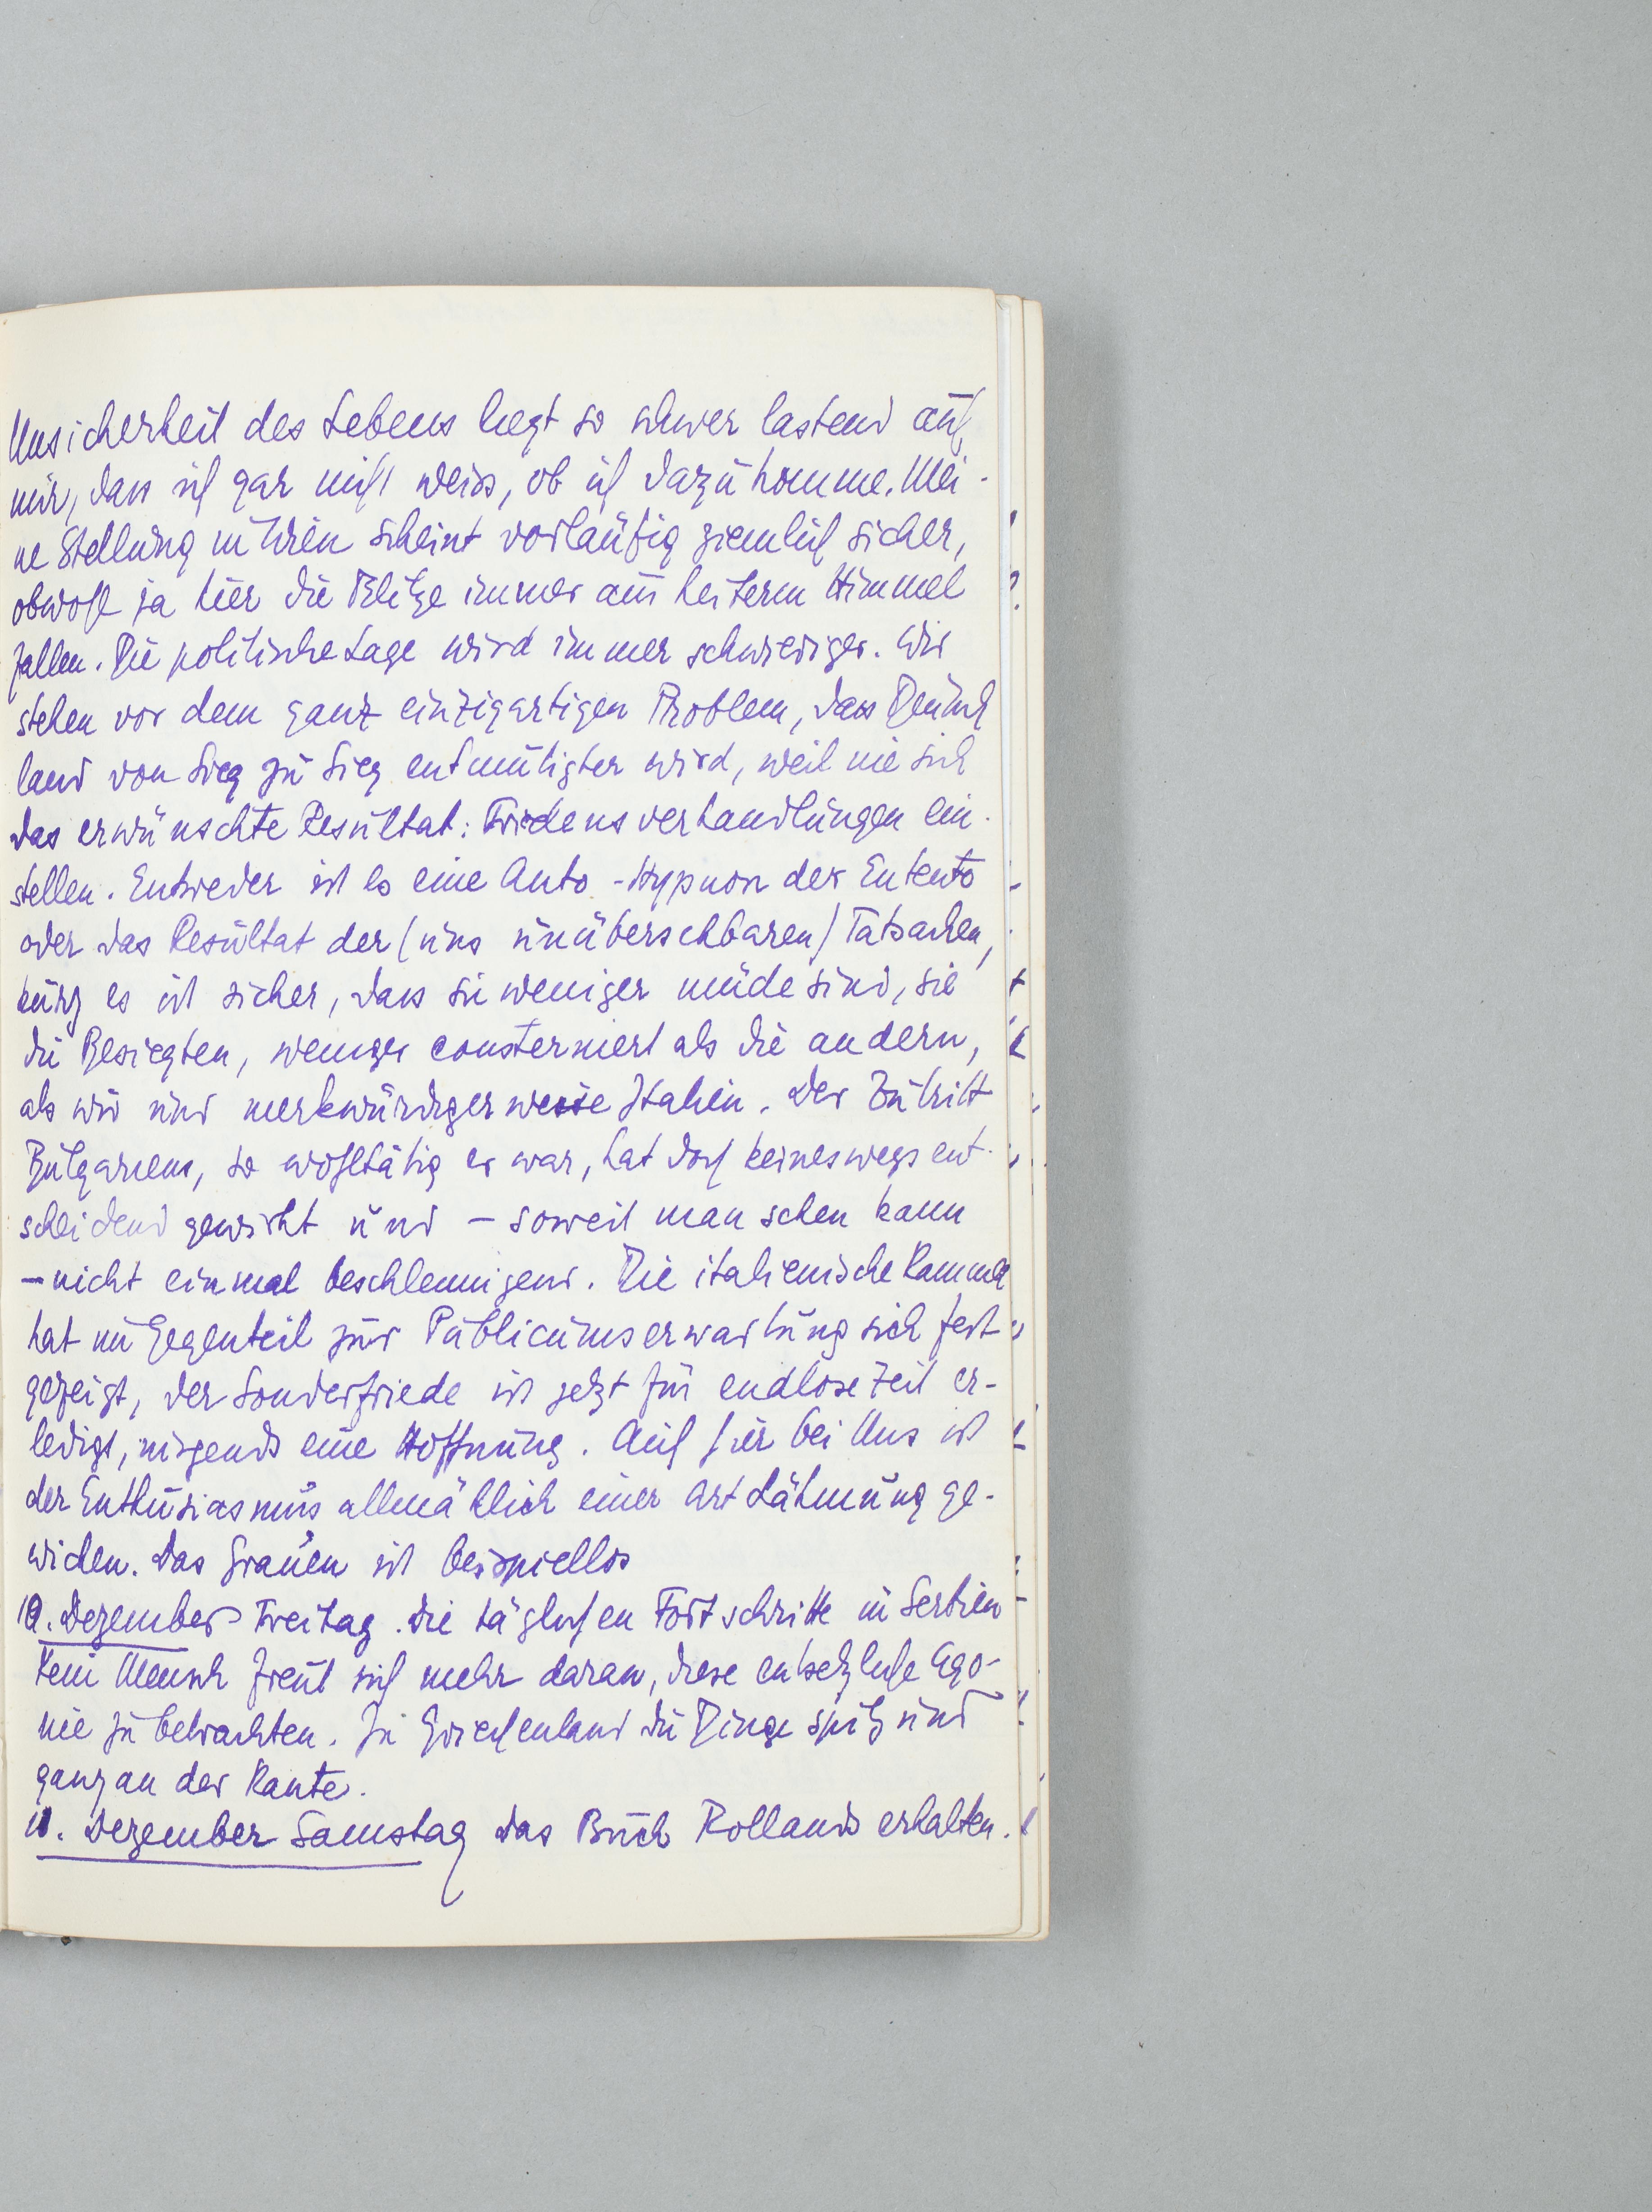 Unsicherheit des Lebens liegt so schwer lastend auf
mir, dass ich gar nicht weiss, ob ich dazu komme. Mei-
ne Stellung in Wien scheint vorläufig ziemlich sicher,
obwohl ja hier die Blitze immer aus heiterm Himmel
fallen. Die politische Lage wird immer schwieriger. Wir
stehen vor dem ganz einzigartigen Problem, dass Deutsch
land von Sieg zu Sieg entmutigter wird, weil nie sich
das erwünschte Resultat: Friedensverhandlungen ein-
stellen. Entweder ist es eine Auto-Hypnose der Entente
oder das Resultat der (uns unübersehbaren) Tatsachen,
kurz es ist sicher, dass sie weniger müde sind, sie
die Besiegten, weniger consterniert als die andern,
als wir und merkwürdigerweise Italien. Der Zutritt
Bulgariens, so wohltätig er war, hat doch keineswegs ent-
scheidend gewirkt und – soweit man sehen kann
– nicht einmal beschleunigend. Die italienische Kammer
hat im Gegenteil zur Publicumserwartung sich fest
gezeigt, der Sonderfriede ist jetzt für endlose Zeit er-
ledigt, nirgends eine Hoffnung. Auch hier bei Uns ist
der Enthusiasmus allmählich einer Art Lähmung ge-
wichen. Das Grauen ist beispiellos
10. Dezember Freitag. Die täglichen Fortschritte in Serbien
Kein Mensch freut sich mehr daran, diese entsetzliche Ago-
nie zu betrachten. In Griechenland die Dinge spitz und
ganz an der Kante.
11. Dezember Samstag Das Buch Rollands erhalten.